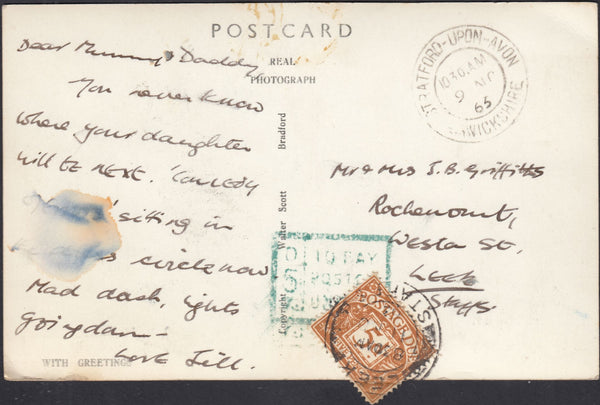 POST CARD
REAL
PHOTOGRAPH
Dear Mummy & Daddy
You never know
where your daughter
will be next. 'Comedy
sitting in
circle now
Mad dash, lights
going down—
Love Jill.
WITH GREETINGS
Copyright Walter Scott Bradford
STRATFORD-UPON-AVON
10 30 AM
9
65
WICKSHIRE
Mr & Mrs J. B. Griffiths
Rochemount,
Westa St.
Leek
Staffs
TO PAY
POSTAGE
POSTAGE DUE
5